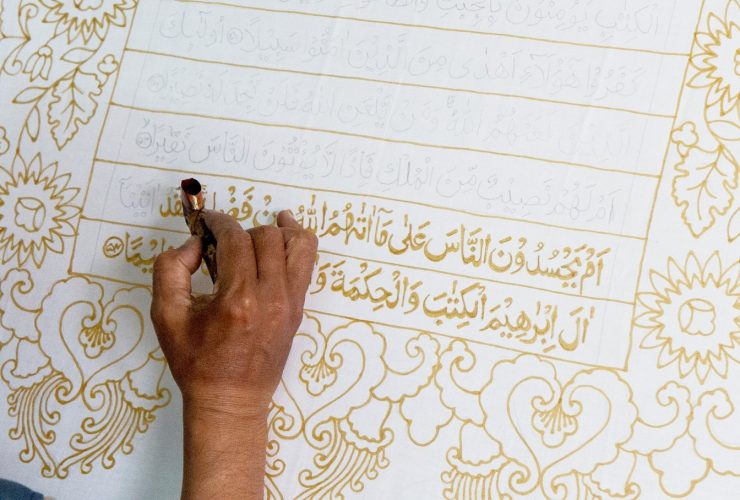 الْكِتٰبِ يُؤْمِنُوْنَ بِالْجِبْتِ
كَفَرُوْا هٰٓؤُلَاۤءِ اَهْدٰى مِنَ الَّذِيْنَ اٰمَنُوْا سَبِيْلًا ۝٥١ اُولٰۤىِٕكَ
الَّذِيْنَ لَعَنَهُمُ اللّٰهُ وَمَنْ يَّلْعَنِ اللّٰهُ فَلَنْ تَجِدَ لَهٗ نَصِيْرًا ۝٥٢
اَمْ لَهُمْ نَصِيْبٌ مِّنَ الْمُلْكِ فَاِذًا لَّا يُؤْتُوْنَ النَّاسَ نَقِيْرًا ۝٥٣
اَمْ يَحْسُدُوْنَ النَّاسَ عَلٰى مَآ اٰتٰىهُمُ اللّٰهُ مِنْ اٰتَيْنَآ
اٰلَ اِبْرٰهِيْمَ الْكِتٰبَ وَالْحِكْمَةَ ۝٥٤